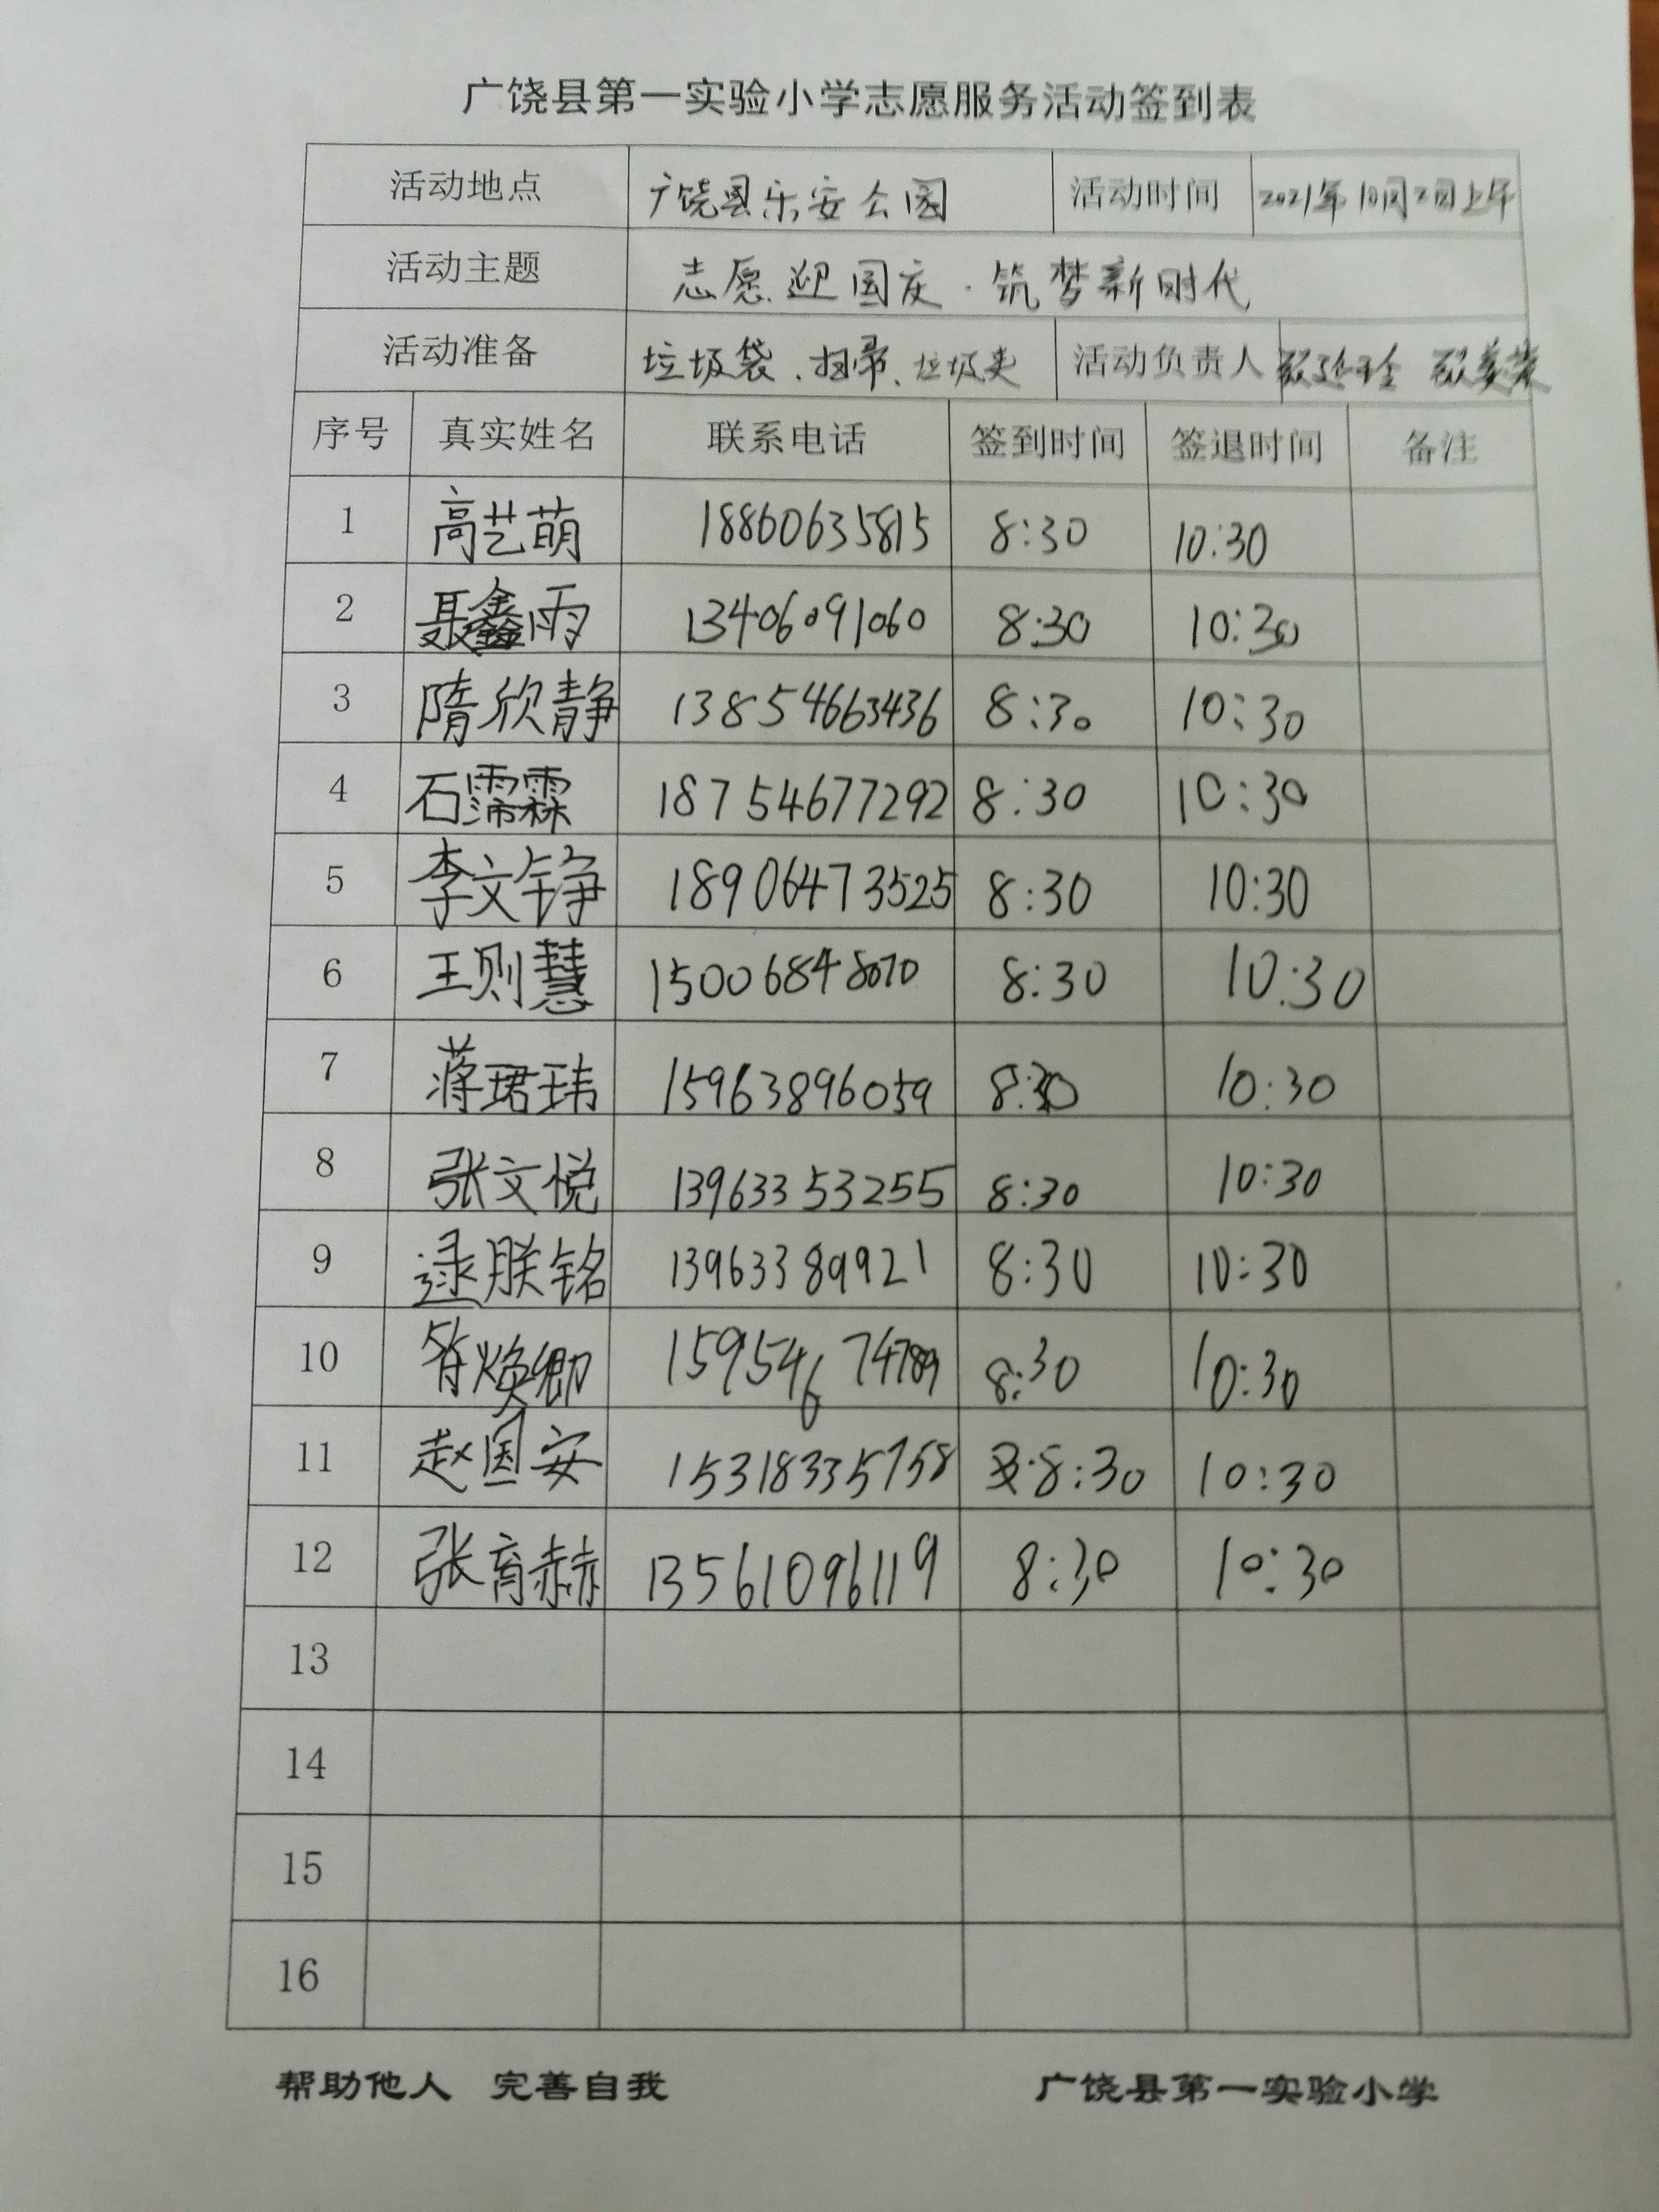 广饶县第一实验小学志愿服务活动签到表
活动地点 广饶县乐安公园 活动时间 2021年10月2日上午
活动主题 志愿迎国庆·筑梦新时代
活动准备 垃圾袋、扫帚、垃圾夹 活动负责人
序号 真实姓名 联系电话 签到时间 签退时间 备注
1 高艺萌 18860635815 8:30 10:30
2 聂鑫雨 13406091060 8:30 10:30
3 隋欣静 13854663436 8:30 10:30
4 石霈霖 18754677292 8:30 10:30
5 李文铮 18906473525 8:30 10:30
6 王则慧 15006848070 8:30 10:30
7 蒋珺玮 15963896059 8:30 10:30
8 张文悦 13963353255 8:30 10:30
9 逯朕铭 13963389921 8:30 10:30
10 焕卿 15954674789 8:30 10:30
11 赵国安 15318335758 8:30 10:30
12 张育赫 13561096119 8:30 10:30
13
14
15
16
帮助他人 完善自我 广饶县第一实验小学